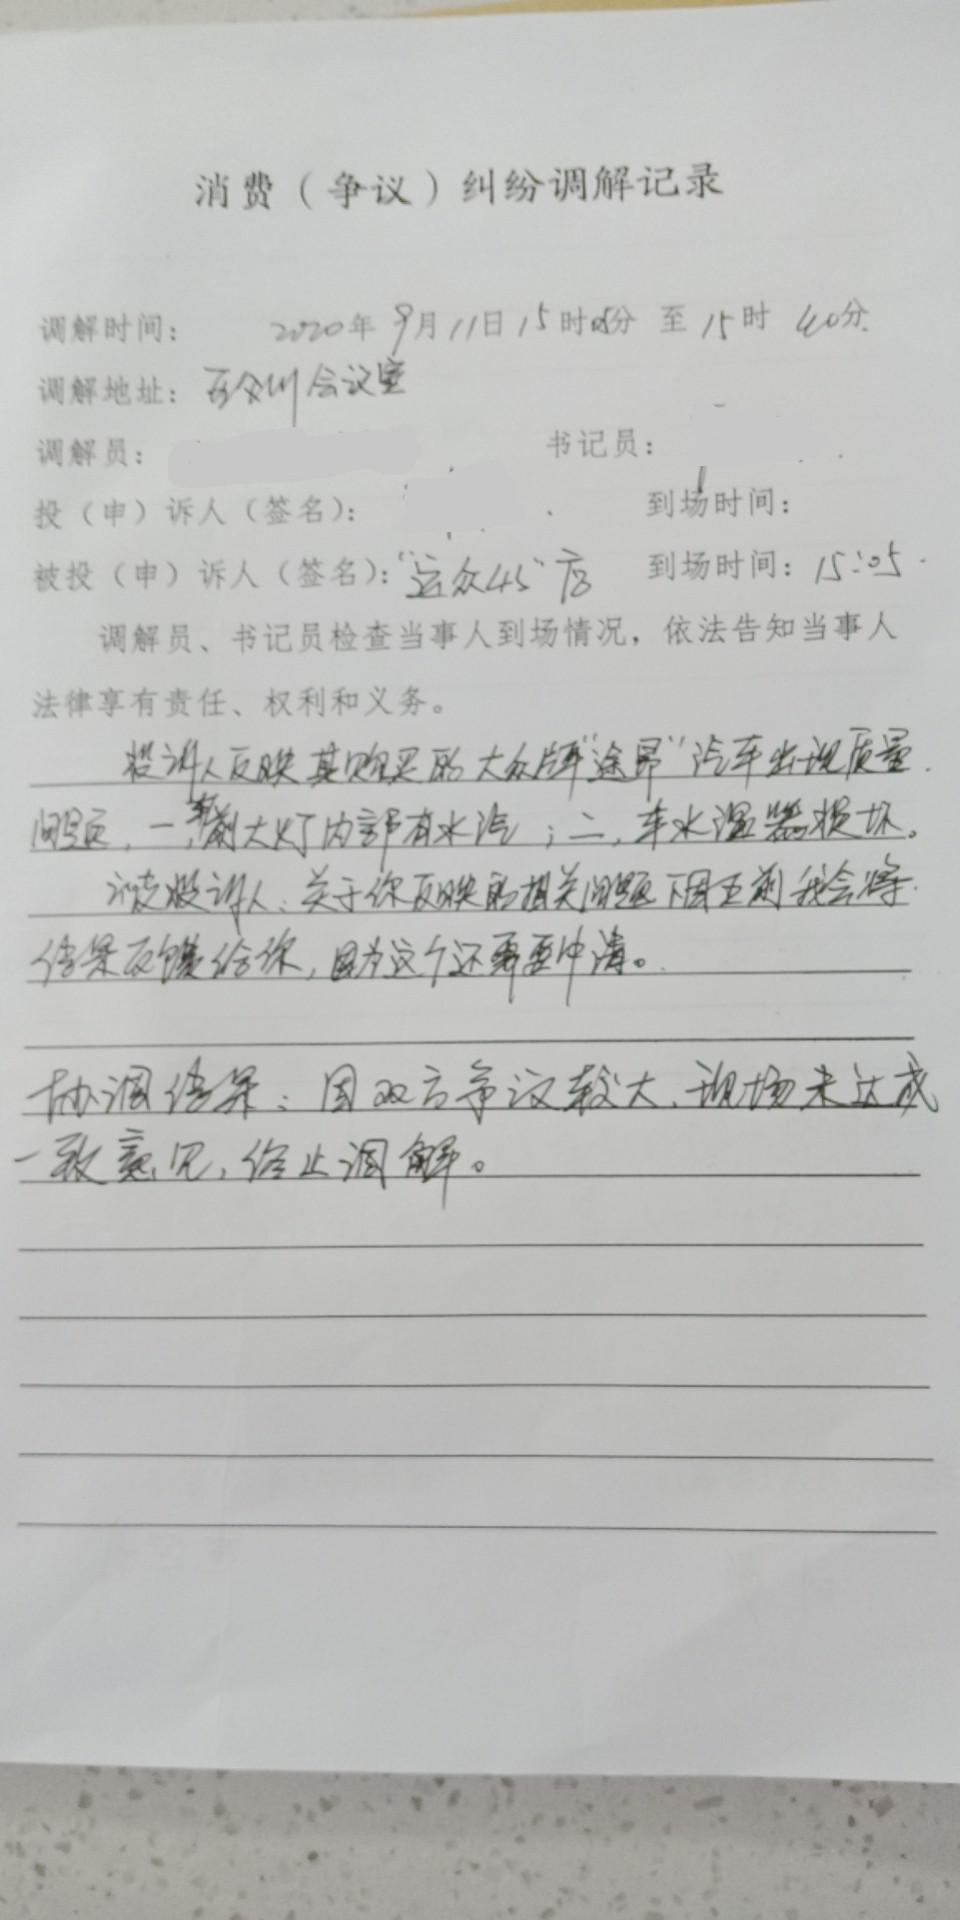 消费（争议）纠纷调解记录
调解时间： 2020年 9月 11日 15时05分 至 15时 40分
调解地址： 会议室
调解员： 书记员：
投（申）诉人（签名）： 到场时间：
被投（申）诉人（签名）：“运众45”店 到场时间：15:05
调解员、书记员检查当事人到场情况，依法告知当事人
法律享有责任、权利和义务。
投诉人反映其购买的大众牌“途昂”汽车出现质量
问题，一，车前大灯内部有水汽；二，车水温器损坏。
被投诉人：关于你反映的相关问题下周五前我会将
结果反馈给你，因为这个还需要申请。
协调结果：因双方争议较大，现场未达成
一致意见，终止调解。